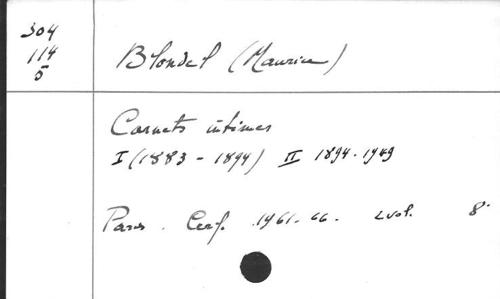 304
114
5
Blondel (Maurice)
Carnets intimes
I (1883 - 1894) II 1894-1949
Paris. Cerf. 1961-66. 2 vol. 8°